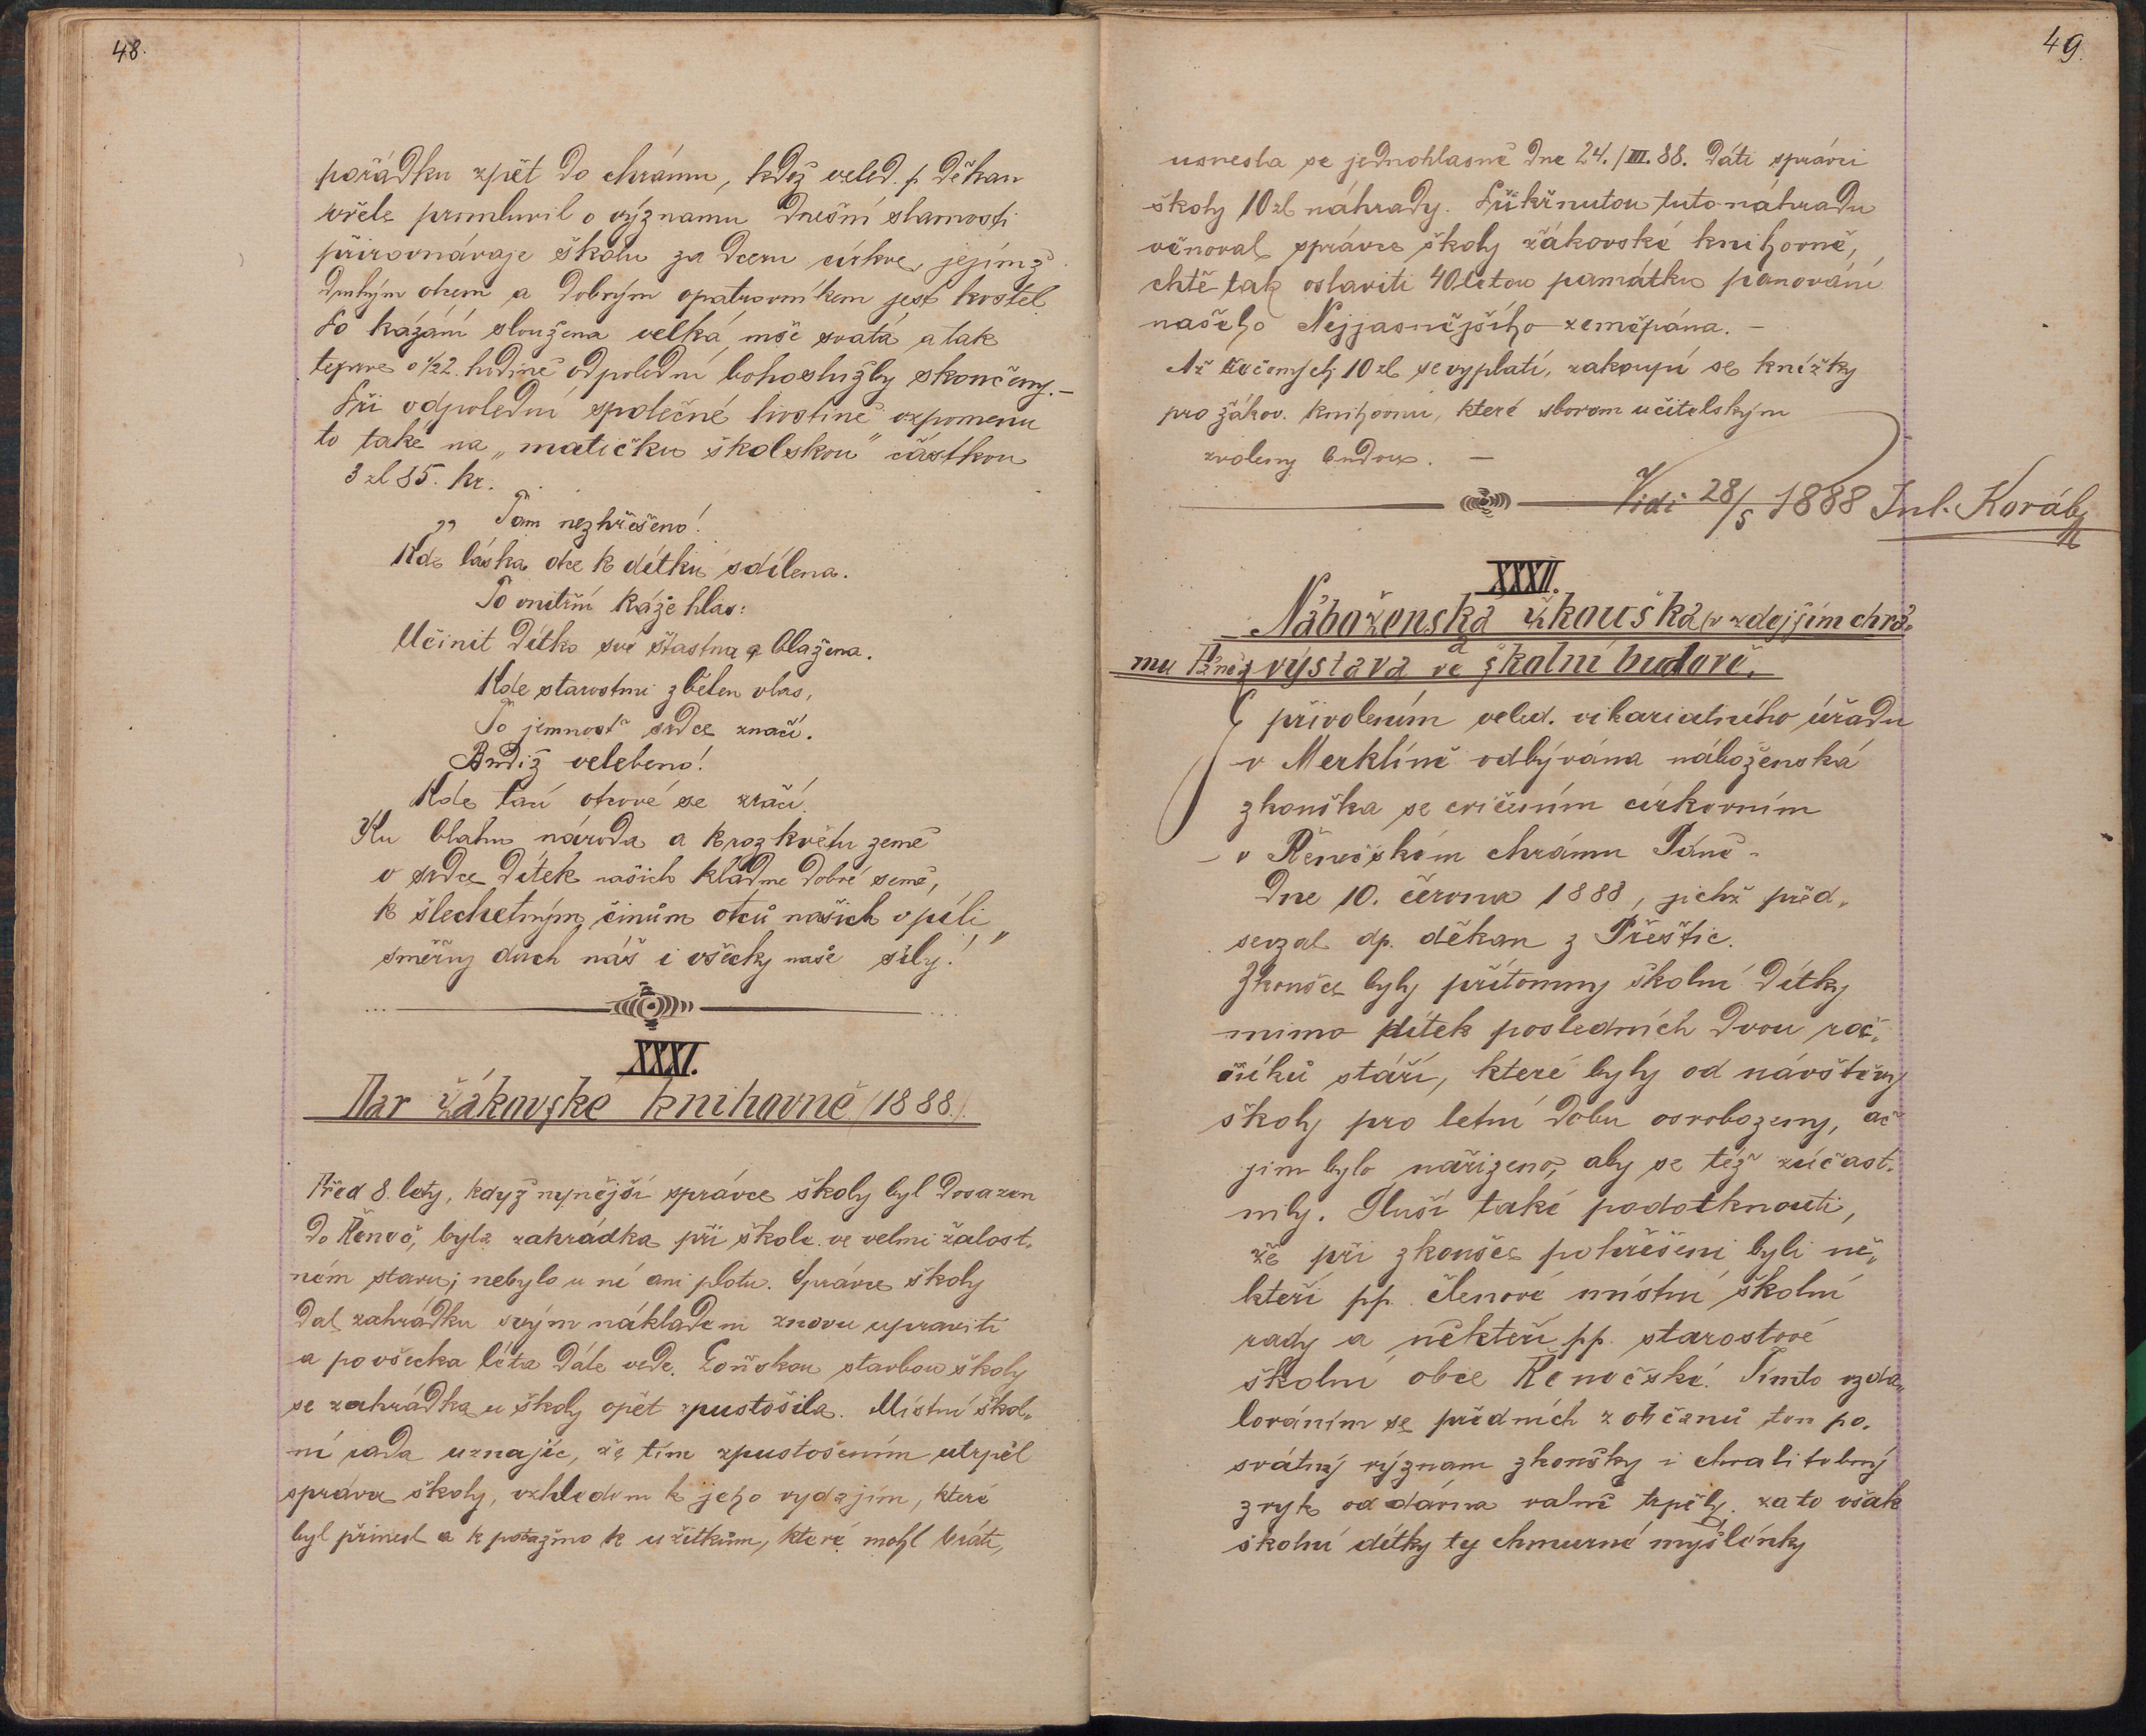 48.
pořádku zpět do chrámu, kdež veled. p. děkan
vřele promluvil o významu dnešní slavnosti
přirovnávaje školu za dceru církve, jejímž
druhým otcem a dobrým opatrovníkem jest kostel.
Po kázání sloužena velká mše svatá a tak
teprve o 1/2 2. hodině odpolední bohoslužby skončeny. –
Při odpolední společné hostině vzpomenu
to také na „matičku školskou" částkou
3 zl 85. kr.
„ Tam nezhřešeno!
Kde láska otce k dítku sdílena.
To vnitřní káže hlas:
Učinit dítko své šťastna a blažena.
Kde starostmi zbělen vlas,
To jemnosť srdce značí.
Budiž velebeno!
Kde tací otcové se zračí.
Ku blahu národa a k rozkvětu země
v srdce dítek našich kladme dobré símě,
k šlechetným činům otců našich v píli
směřuj duch náš i všecky naše síly!"
XXXI.
Dar žákovské knihovně (1888.)
Před 8. lety, když nynější správce školy byl dosazen
do Řenče, byla zahrádka při škole ve velmi žalost„
ném stavu; nebylo u ní ani plotu. Správce školy
dal zahrádku svým nákladem znovu upraviti
a po všecka léta dále vede. Loňskou stavbou školy
se zahrádka u školy opět zpustošila. Místní škol„
ní rada uznajíc, že tím zpustošením utrpěl
správce školy, vzhledem k jeho vydajím, které
byl přinesl a k potažmo k užitkům, které mohl bráti,
49.
usnesla se jednohlasně dne 24./III. 88. dáti správci
školy 10 zl náhrady. Přiřknutou tuto náhradu
věnoval správce školy žákovské knihovně,
chtě tak oslaviti 40letou památku panování
našeho Nejjasnějšího zeměpána. –
Až 10 zl se vyplatí, zakoupí se knížky
pro žákov. knihovnu, které sborem učitelským
zvoleny budou. –
Vidi 28/5 1888 Jul. Koráb
XXXII.
Náboženská zkouška (v zdejším chrá„
mu Páně) a výstava ve školní budově.
S přivolením veled. vikariatního úřadu
v Merklíně odbývána náboženská
zkouška se cvičením církevním
– v Řenečském chrámu Páně –
dne 10. června 1888, jichž před„
sevzal dp. děkan z Přeštic.
Zkoušce byly přítomny školní dítky
mimo dítek posledních dvou roč„
níků stáří, které byly od návštěvy
školy pro letní dobu osvobozeny, ač
jim bylo nařízeno, aby se též zúčast„
nily. Sluší také podotknouti,
že při zkoušce pohřešeni byli ně„
kteří pp. členové místní školní
rady a někteří pp. starostové
školní obce Řenečské. Tímto vzda„
lováním se předních z občanů ten po„
svátný význam zkoušky i chvalitebný
zvyk od dávna valně trpěly; za to však
školní dítky ty chmurné myšlénky